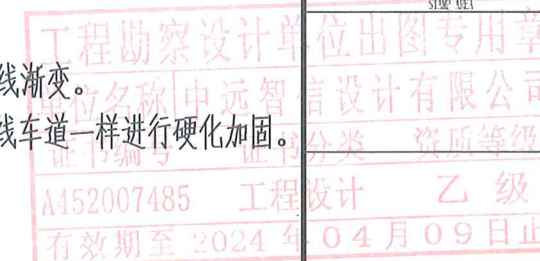 STAMP AREA
工程勘察设计单位出图专用章
线渐变。
单位名称 中远智信设计有限公司
线车道一样进行硬化加固。
证书编号 证书分类 资质等级
A452007485 工程设计 乙级
有效期至 2024 年 04 月 09 日止